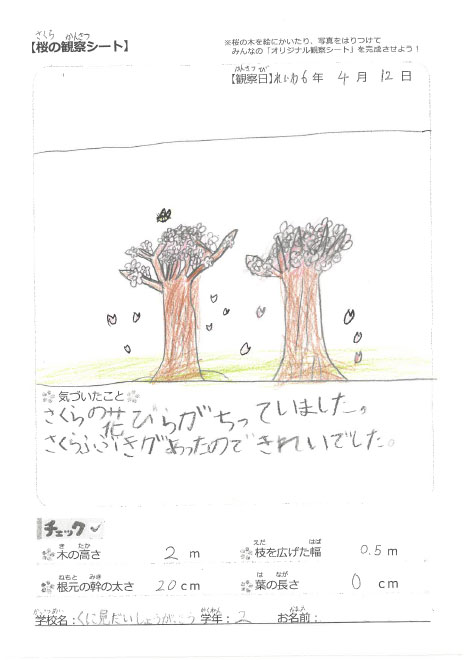 さくら かんさつ
【桜の観察シート】
※桜の木を絵にかいたり、写真をはりつけて
みんなの「オリジナル観察シート」を完成させよう！
かんさつ び
【観察日】れいわ6年 4月 12日
気づいたこと
さくらの花びらがちっていました。
さくらふぶきがあったのできれいでした。
チェック
き たか
木の高さ 2 m
えだ ひろ はば
枝を広げた幅 0.5 m
ねもと みき
根元の幹の太さ 20 cm
は なが
葉の長さ 0 cm
がっこうめい がくねん なまえ
学校名：くに見だいしょうがっこう 学年：2 お名前：